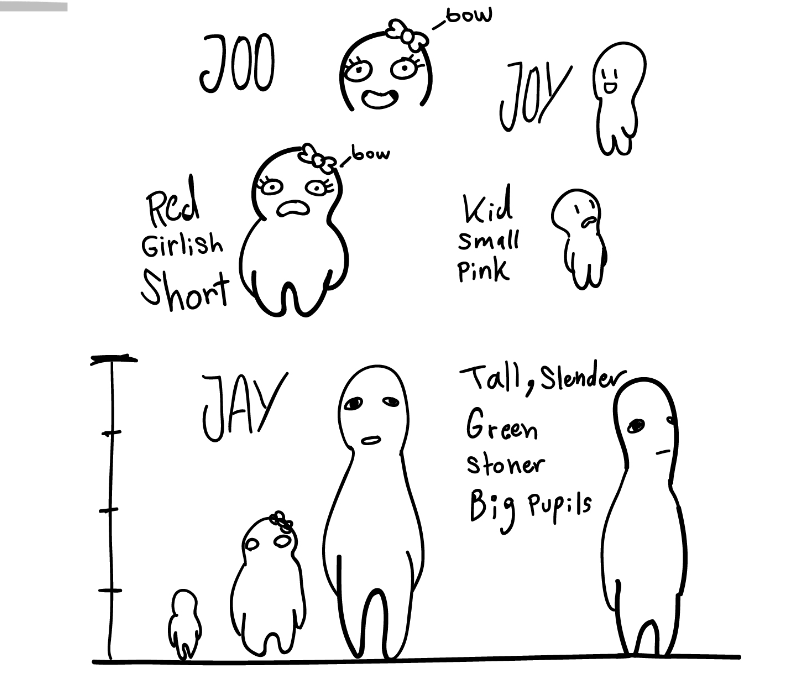 JOO
bow
JOY
bow
Red
Girlish
Short
Kid
Small
Pink
JAY
Tall, Slender
Green
Stoner
Big Pupils